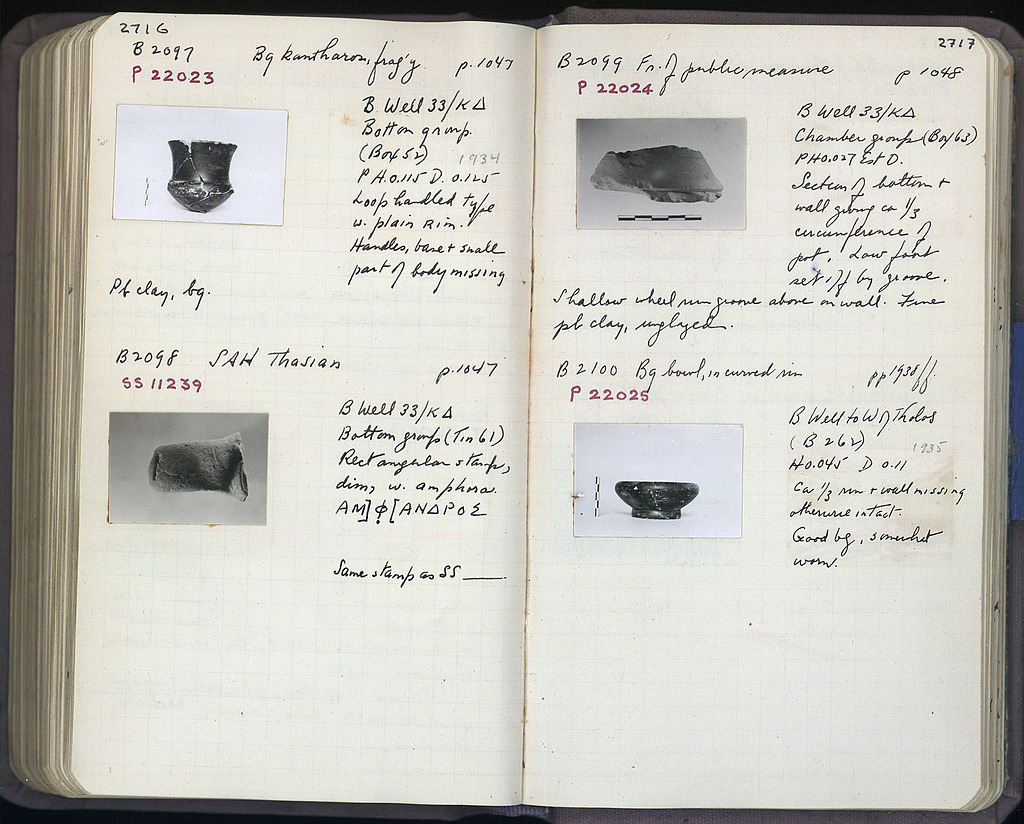 2716
B 2097 Bg kantharos, frag'y p. 1047
P 22023
B Well 33/ΚΔ
Bottom group.
(Box 52) 1934
P H. 0.115 D. 0.125
Loop handled type
w. plain rim.
Handles, base + small
part of body missing
Pb clay, bg.
B 2098 SAH Thasian p. 1047
SS 11239
B Well 33/ΚΔ
Bottom group (Tin 61)
Rectangular stamp,
dim, w. amphora.
ΑΜ]Φ[ΑΝΔΡΟΣ
Same stamp as SS ____.
2717
B 2099 Fr. of public measure p 1048
P 22024
B Well 33/ΚΔ
Chamber group (Box 63)
P H 0.027 Est D.
Section of bottom +
wall giving ca 1/3
circumference of
pot. Low foot
set off by groove.
Shallow wheel run groove above on wall. Fine
pb clay, unglazed.
B 2100 Bg bowl, incurved rim pp 1938 ff.
P 22025
B Well to W of Tholos
(B 262) 1935
H 0.045 D 0.11
Ca 1/3 rim + wall missing
otherwise intact.
Good bg, somewhat
worn.